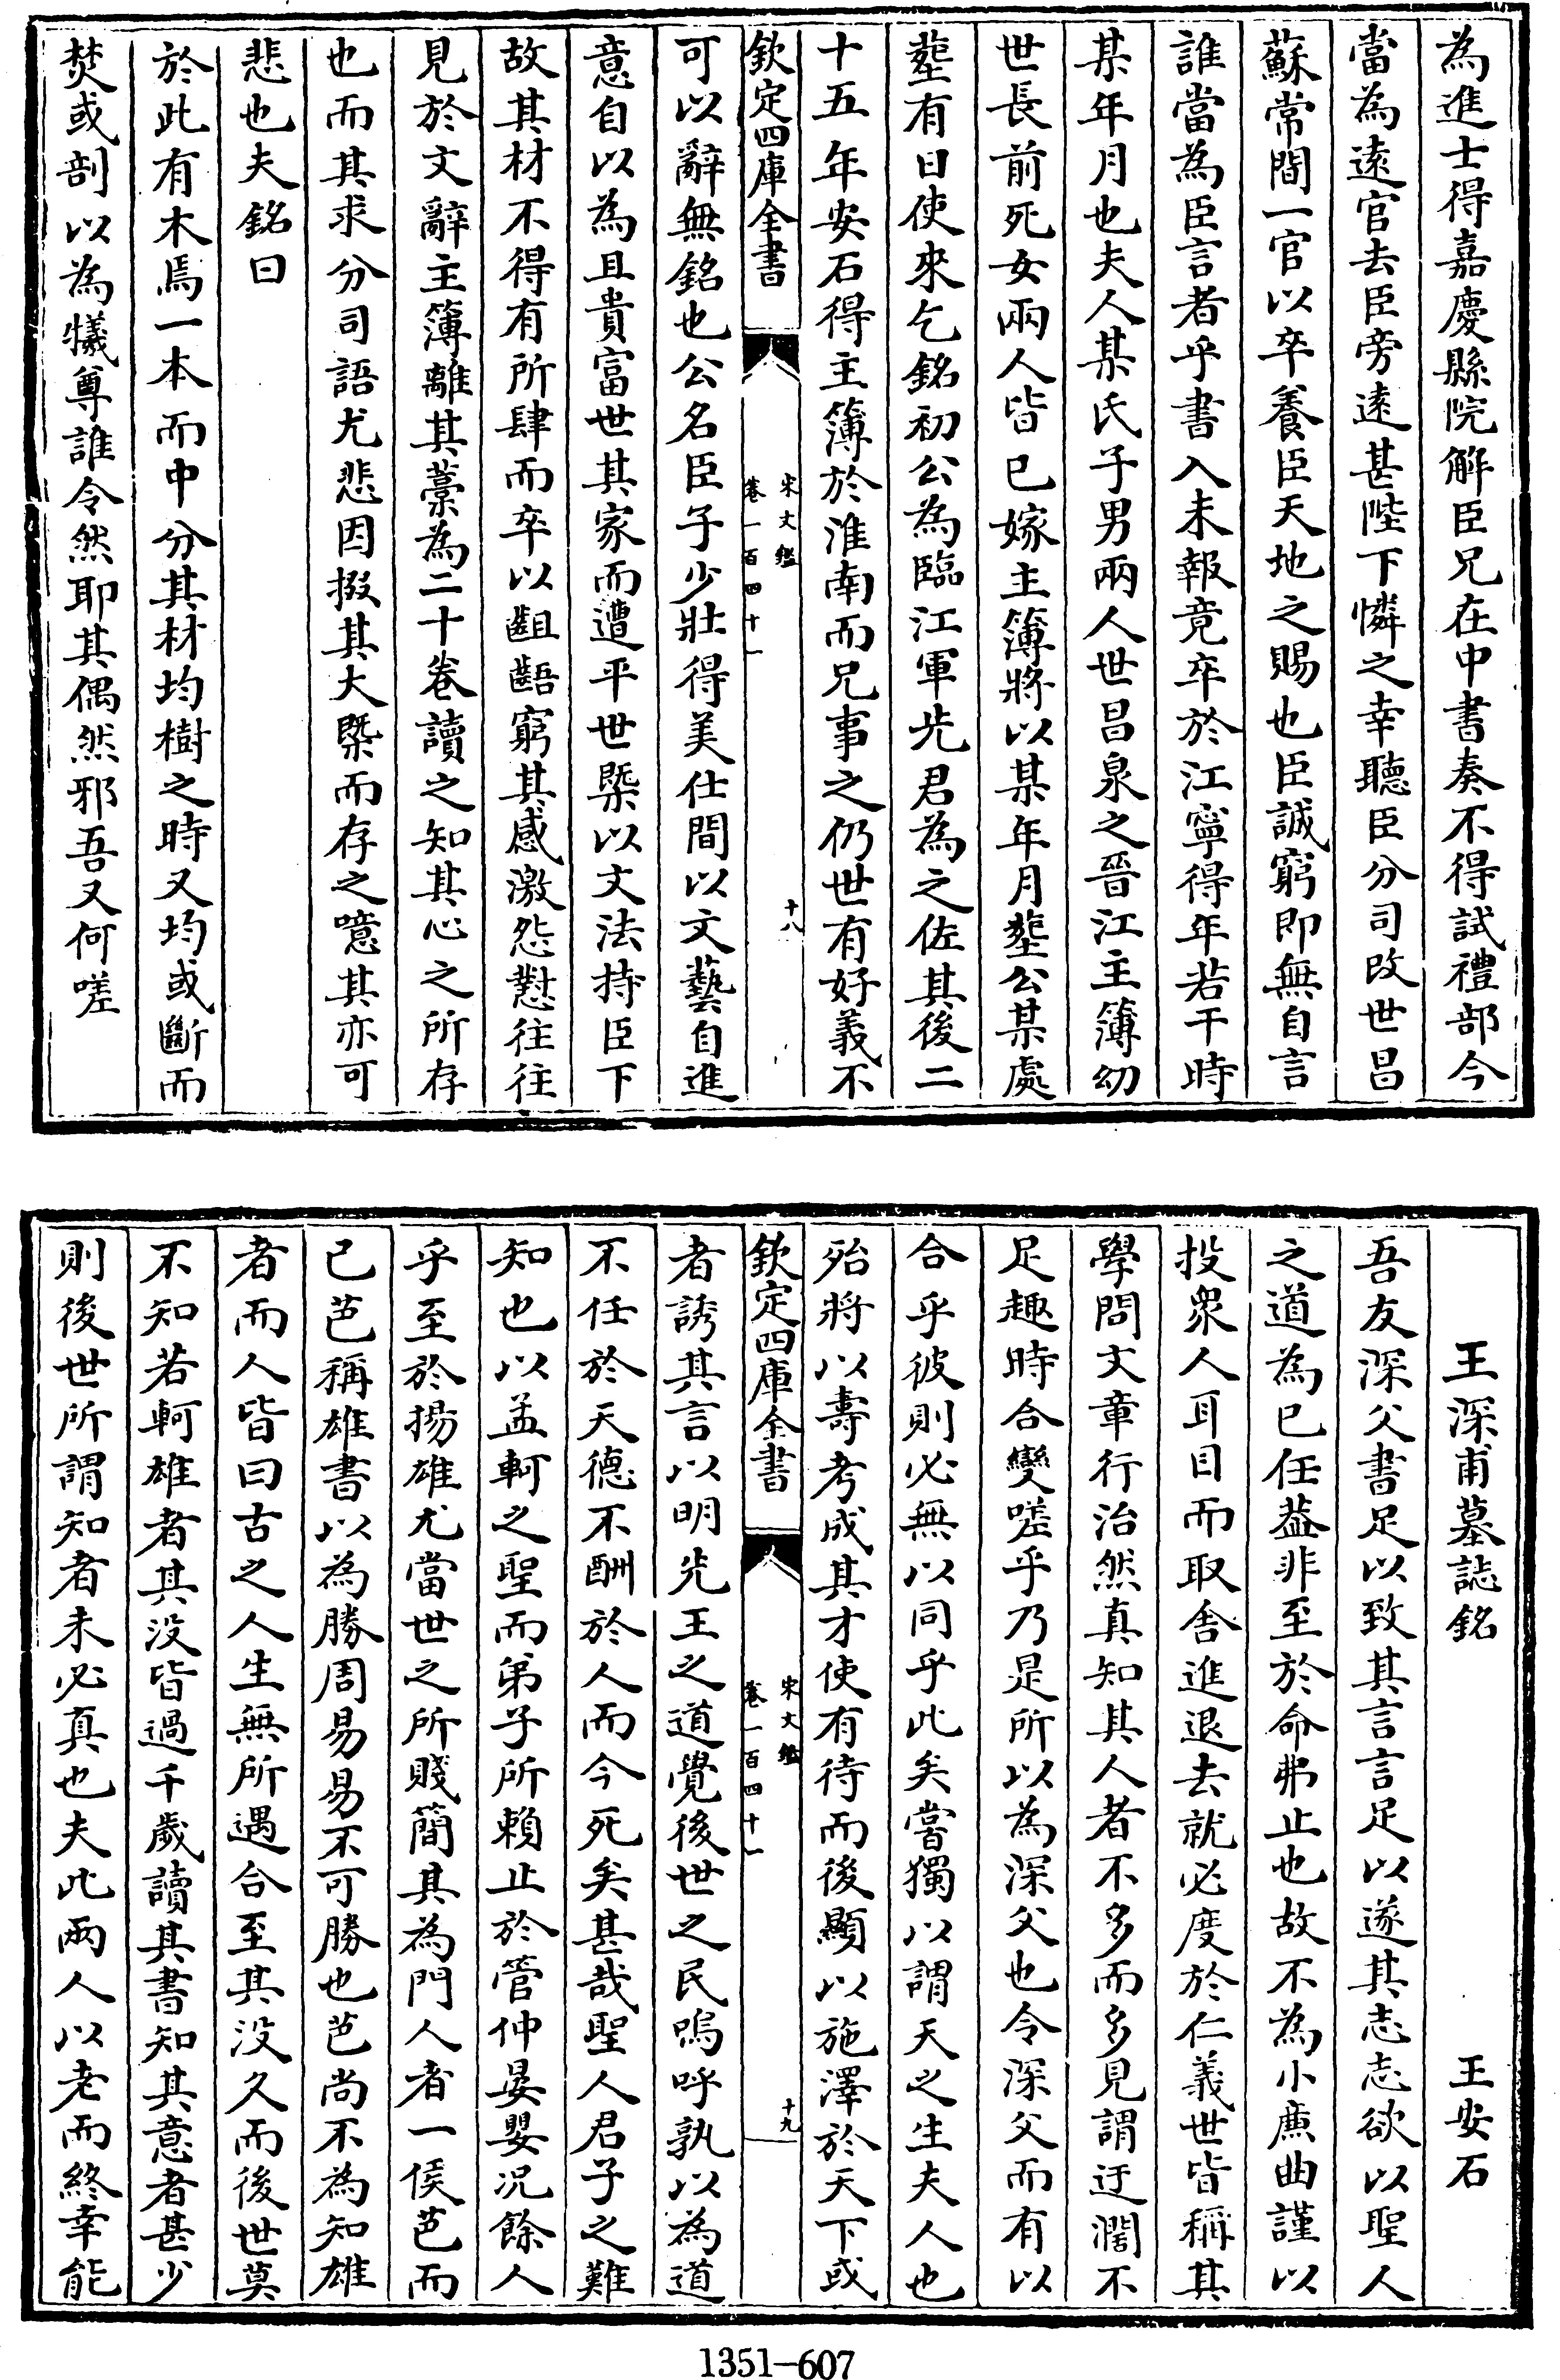 為進士得嘉慶縣院解臣兄在中書奏不得試禮部今
當為遠官去臣旁遠甚陛下憐之幸聽臣分司改世昌
蘇常間一官以卒養臣天地之賜也臣誠窮即無自言
誰當為臣言者乎書入未報竟卒於江寧得年若干時
某年月也夫人某氏子男兩人世昌泉之晉江主簿幼
世長前死女兩人皆已嫁主簿將以某年月塟公某處
塟有日使來乞銘初公為臨江軍先君為之佐其後二
十五年安石得主簿於淮南而兄事之仍世有好義不
欽定四庫全書
宋文鑑
卷一百四十一
十八
可以辭無銘也公名臣子少壯得美仕間以文藝自進
意自以為且貴富世其家而遭平世槩以文法持臣下
故其材不得有所肆而卒以齟齬窮其感激怨懟往往
見於文辭主簿離其藁為二十卷讀之知其心之所存
也而其求分司語尤悲因掇其大槩而存之噫其亦可
悲也夫銘曰
於此有木焉一本而中分其材均樹之時又均或斷而
焚或剖以為犧尊誰令然耶其偶然邪吾又何嗟
王深甫墓誌銘 王安石
吾友深父書足以致其言言足以遂其志志欲以聖人
之道為已任葢非至於命弗止也故不為小廉曲謹以
投衆人耳目而取舍進退去就必度於仁義世皆稱其
學問文章行治然真知其人者不多而多見謂迂濶不
足趣時合變嗟乎乃是所以為深父也令深父而有以
合乎彼則必無以同乎此矣嘗獨以謂天之生夫人也
殆將以壽考成其才使有待而後顯以施澤於天下或
欽定四庫全書
宋文鑑
卷一百四十一
十九
者誘其言以明先王之道覺後世之民嗚呼孰以為道
不任於天德不酬於人而今死矣甚哉聖人君子之難
知也以孟軻之聖而弟子所賴止於管仲晏嬰况餘人
乎至於揚雄尤當世之所賤簡其為門人者一侯芭而
已芭稱雄書以為勝周易易不可勝也芭尚不為知雄
者而人皆曰古之人生無所遇合至其没久而後世莫
不知若軻雄者其没皆過千歲讀其書知其意者甚少
則後世所謂知者未必真也夫此兩人以老而終幸能
1351-607